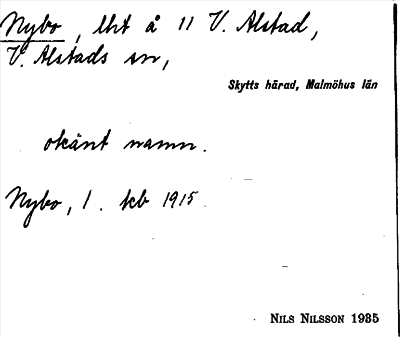 Nybo, lht å 11 V. Alstad,
V. Alstads sn,
Skytts härad, Malmöhus län
okänt namn.
Nybo, 1. kb 1915.
NILS NILSSON 1935